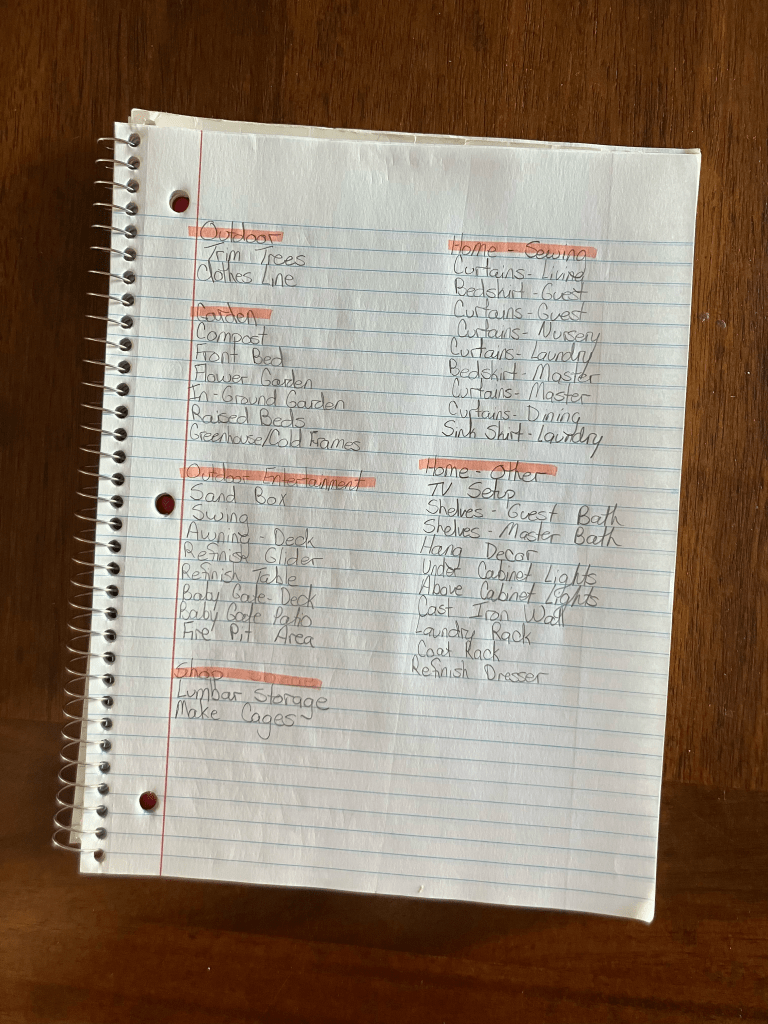 Outdoor
Trim Trees
Clothes Line
Garden
Compost
Front Bed
Flower Garden
In-Ground Garden
Raised Beds
Greenhouse/Cold Frames
Outdoor Entertainment
Sand Box
Swing
Awning - Deck
Refinish Glider
Refinish Table
Baby Gate - Deck
Baby Gate Patio
Fire Pit Area
Shop
Lumbar Storage
Make Cages
Home - Sewing
Curtains - Living
Bedskirt - Guest
Curtains - Guest
Curtains - Nursery
Curtains - Laundry
Bedskirt - Master
Curtains - Master
Curtains - Dining
Sink Skirt - Laundry
Home - Other
TV Setup
Shelves - Guest Bath
Shelves - Master Bath
Hang Decor
Under Cabinet Lights
Above Cabinet Lights
Cast Iron Wall
Laundry Rack
Coat Rack
Refinish Dresser